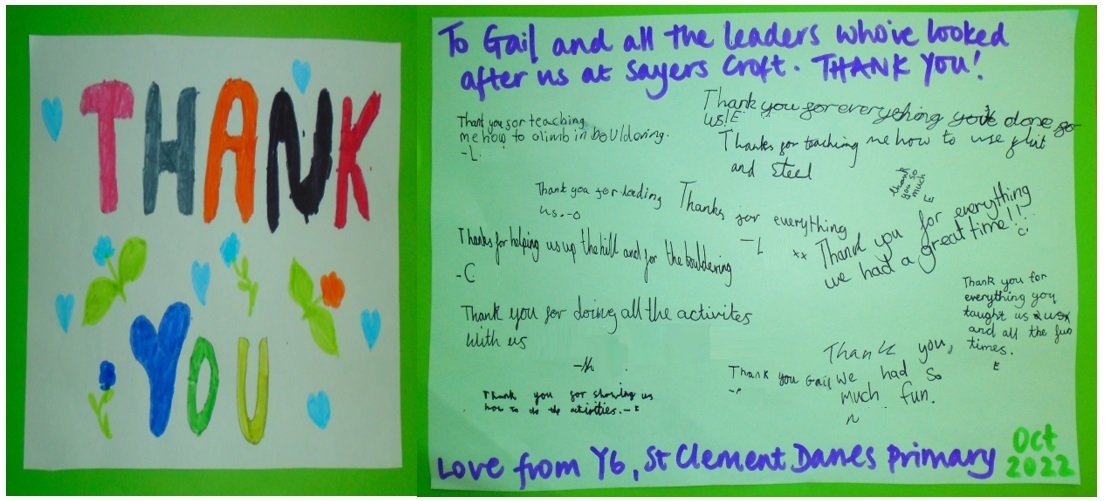 THANK
YOU
To Gail and all the leaders who've looked
after us at Sayers Croft. THANK YOU!
Thank you for teaching
me how to climb in bouldering.
-L.
Thank you for everything you's done for
us!E
Thanks for teaching me how to use flit
and steel
thank
you so
much
E
Thank you for leading
us.-O
Thanks for everything
-L
xx Thank you for everything
we had a great time!!
C
Thanks for helping us up the hill and for the bouldering
-C
Thank you for
everything you
taught us
and all the fun
times.
E
Thank you for doing all the activites
with us
Thank you for showing us
how to do the activities.-E
Thank you Gail
Thank you,
We had so
much fun.
n
Love from Y6, St Clement Danes Primary
Oct
2022